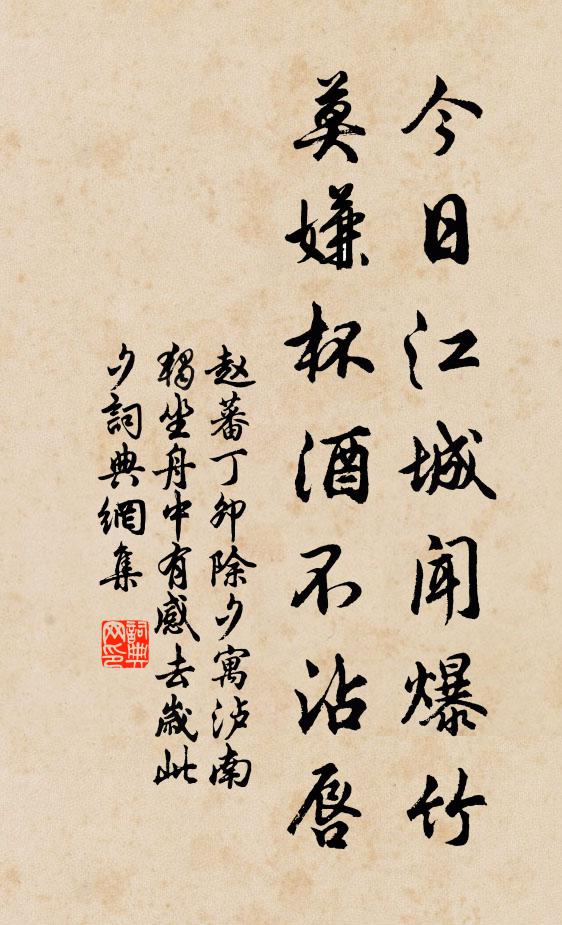 今日江城闻爆竹
莫嫌杯酒不沾唇
赵蕃丁卯除夕寓泸南
獨坐舟中有感去歲此
夕詞典網集
詞典
网印